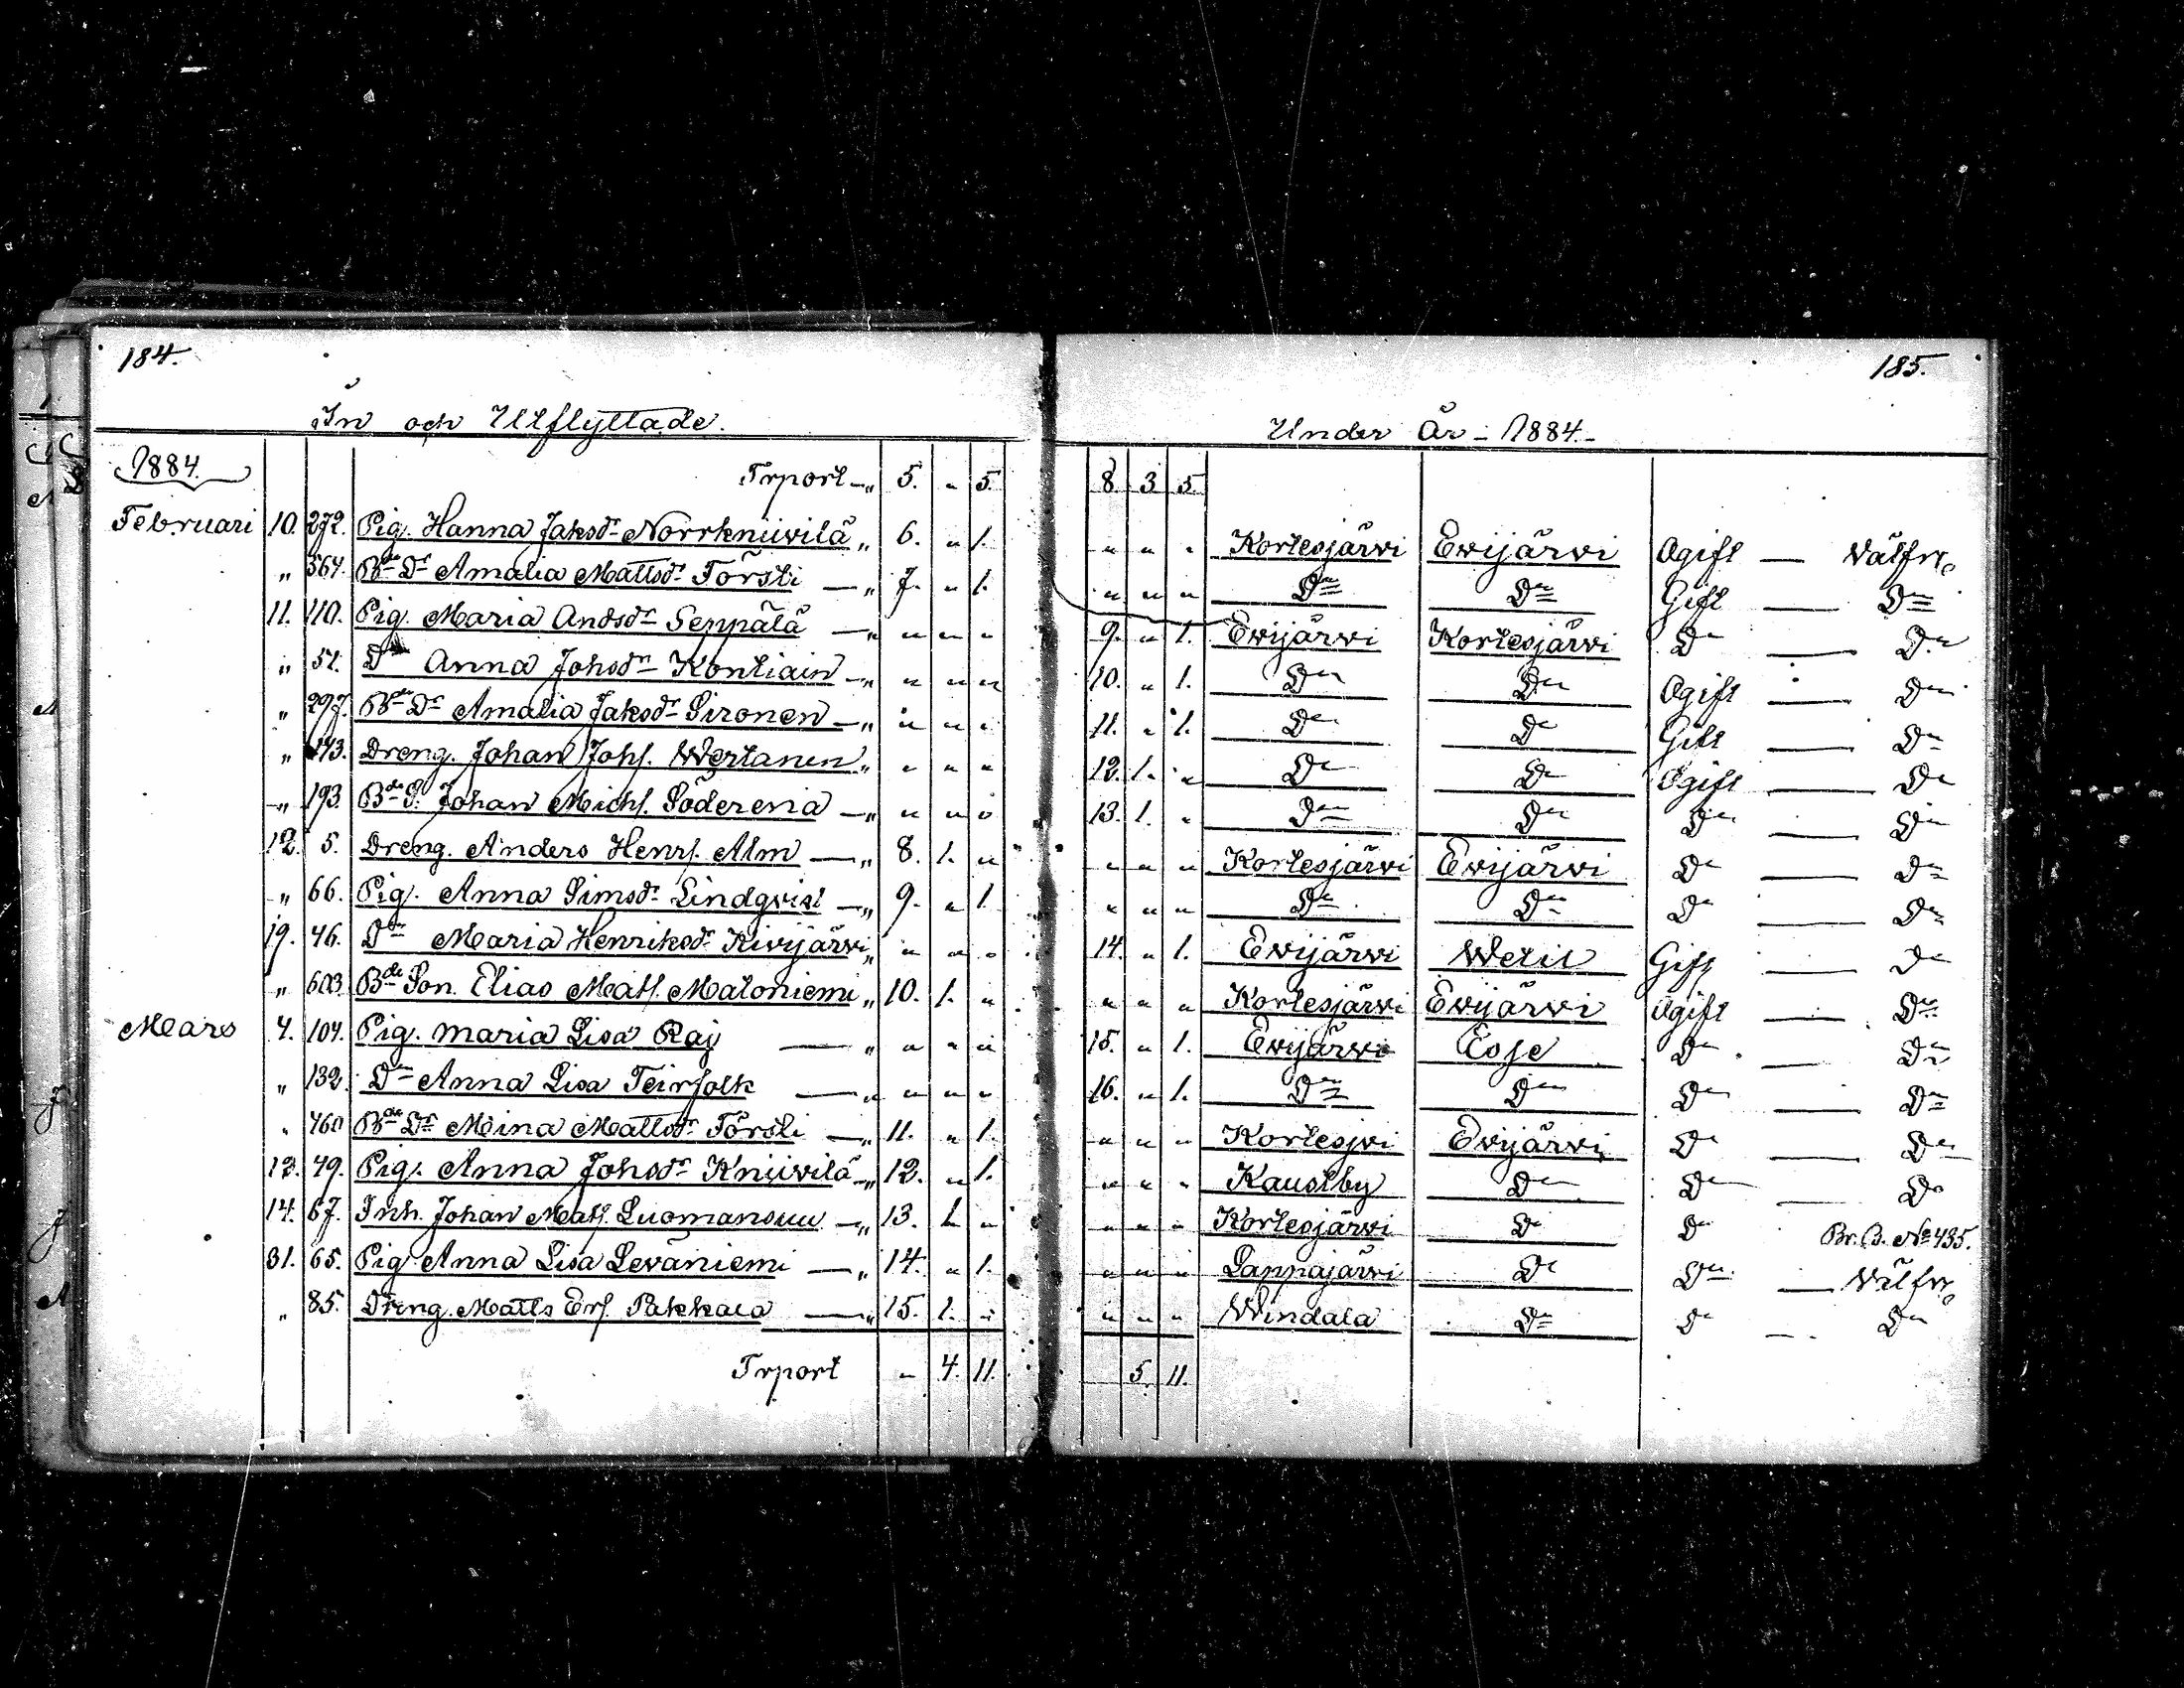 184.
In och Utflyttade.
1884.
Trport — „ 5. „ 5.
Februari 10. 272. Pig. Hanna Jaksdr Norrkniivilä „ 6. „ 1.
„ 564. Bde Dr Amalia Mattsdr Törsti — „ 7. „ 1.
11. 110. Pig. Maria Andsdr Seppälä — „ „ „ „
„ 51. Dn Anna Johsdr Kontiain — „ „ „ „
„ 297. Bde Dr Amalia Jaksdr Sironen — „ „ „ „
„ 143. Dreng. Johan Johs. Wertanen „ „ „ „
„ 193. Bde S. Johan Michs. Söderena — „ „ „ „
12. 5. Dreng. Anders Henrs. Alm — „ 8. 1. „
„ 66. Pig. Anna Simsdr Lindqvist — „ 9. „ 1.
19. 46. Dn Maria Henriksdr Kivijärvi „ „ „ „
„ 603. Bde Son. Elias Mats. Matoniemi „ 10. 1. „
Mars 4. 104. Pig. Maria Lisa Raj — „ „ „ „
„ 132. Dn Anna Lisa Teirfolk — „ „ „ „
„ 460 Bde Dr Mina Mattsdr Törsti — „ 11. „ 1.
13. 49. Pig. Anna Johsdr Kniivilä — „ 12. „ 1.
14. 67. Inh. Johan Mats. Luomansuu — „ 13. 1. „
31. 65. Pig. Anna Lisa Leväniemi — „ 14. „ 1.
„ 85. Dreng. Matts Ers. Pakkala — „ 15. 1. „
Trport „ 4. 11.
185.
Under År - 1884 -
8. 3. 5.
„ „ „ Kortesjärvi Evijärvi Ogift — Välfr.
„ „ „ Dn Dn Gift — Dn
9. „ 1. Evijärvi Kortesjärvi Dn — Dn
10. „ 1. Dn Dn Ogift — Dn
11. „ 1. Dn Dn Gift — Dn
12. 1. „ Dn Dn Ogift — Dn
13. 1. „ Dn Dn Dn — Dn
„ „ „ Kortesjärvi Evijärvi Dn — Dn
„ „ „ Dn Dn Dn — Dn
14. „ 1. Evijärvi Wetil Gift — Dn
„ „ „ Kortesjärvi Evijärvi Ogift — Dn
15. „ 1. Evijärvi Esse Dn — Dn
16. „ 1. Dn Dn Dn — Dn
„ „ „ Kortesjvi Evijärvi Dn — Dn
„ „ „ Kaustby Dn Dn — Dn
„ „ „ Kortesjärvi Dn Dn Br. B. No 435.
„ „ „ Lappajärvi Dn Dn — Välfr.
„ „ „ Windala Dn Dn — Dn
5. 11.